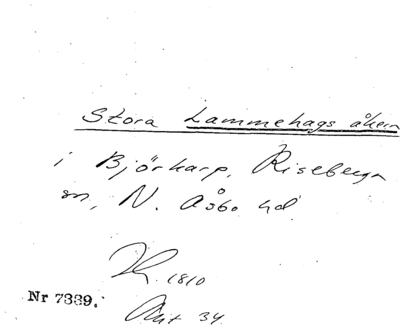 Stora Lammehags åkern
i Björkarp, Riseberga
sn, N. Åsbo hd.
1810
Nr 7339.
Akt 34